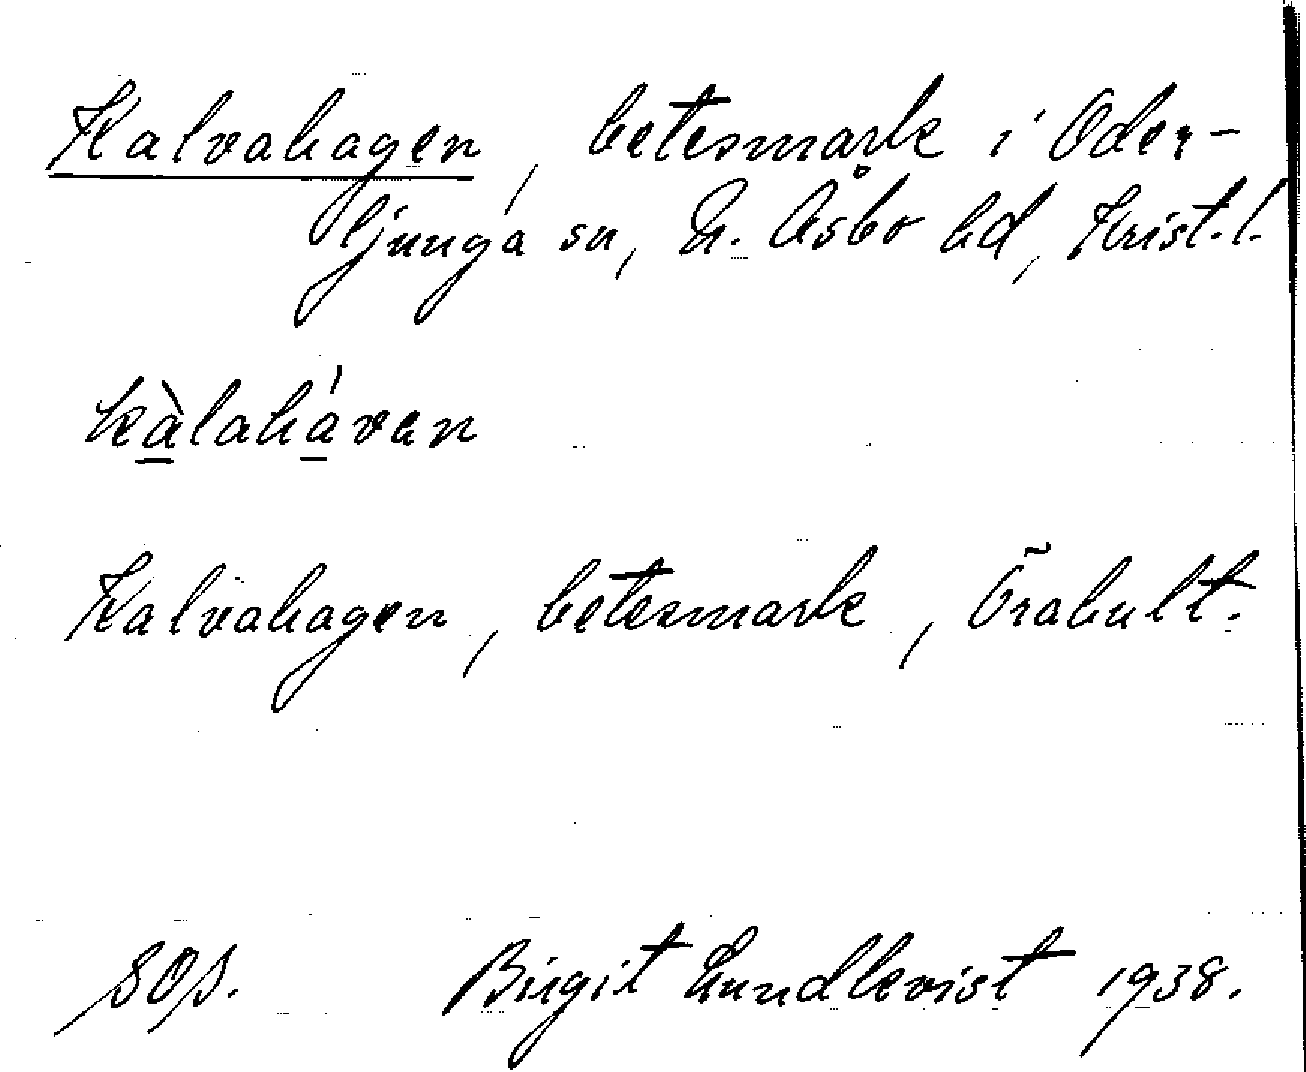 Kalvahagen, betesmark i Oder-
ljunga sn, N. Åsbo hd, Krist. l.
kàlaháven
Kalvahagen, betesmark, Örahult.
SOS. Birgit Lundkvist 1938.